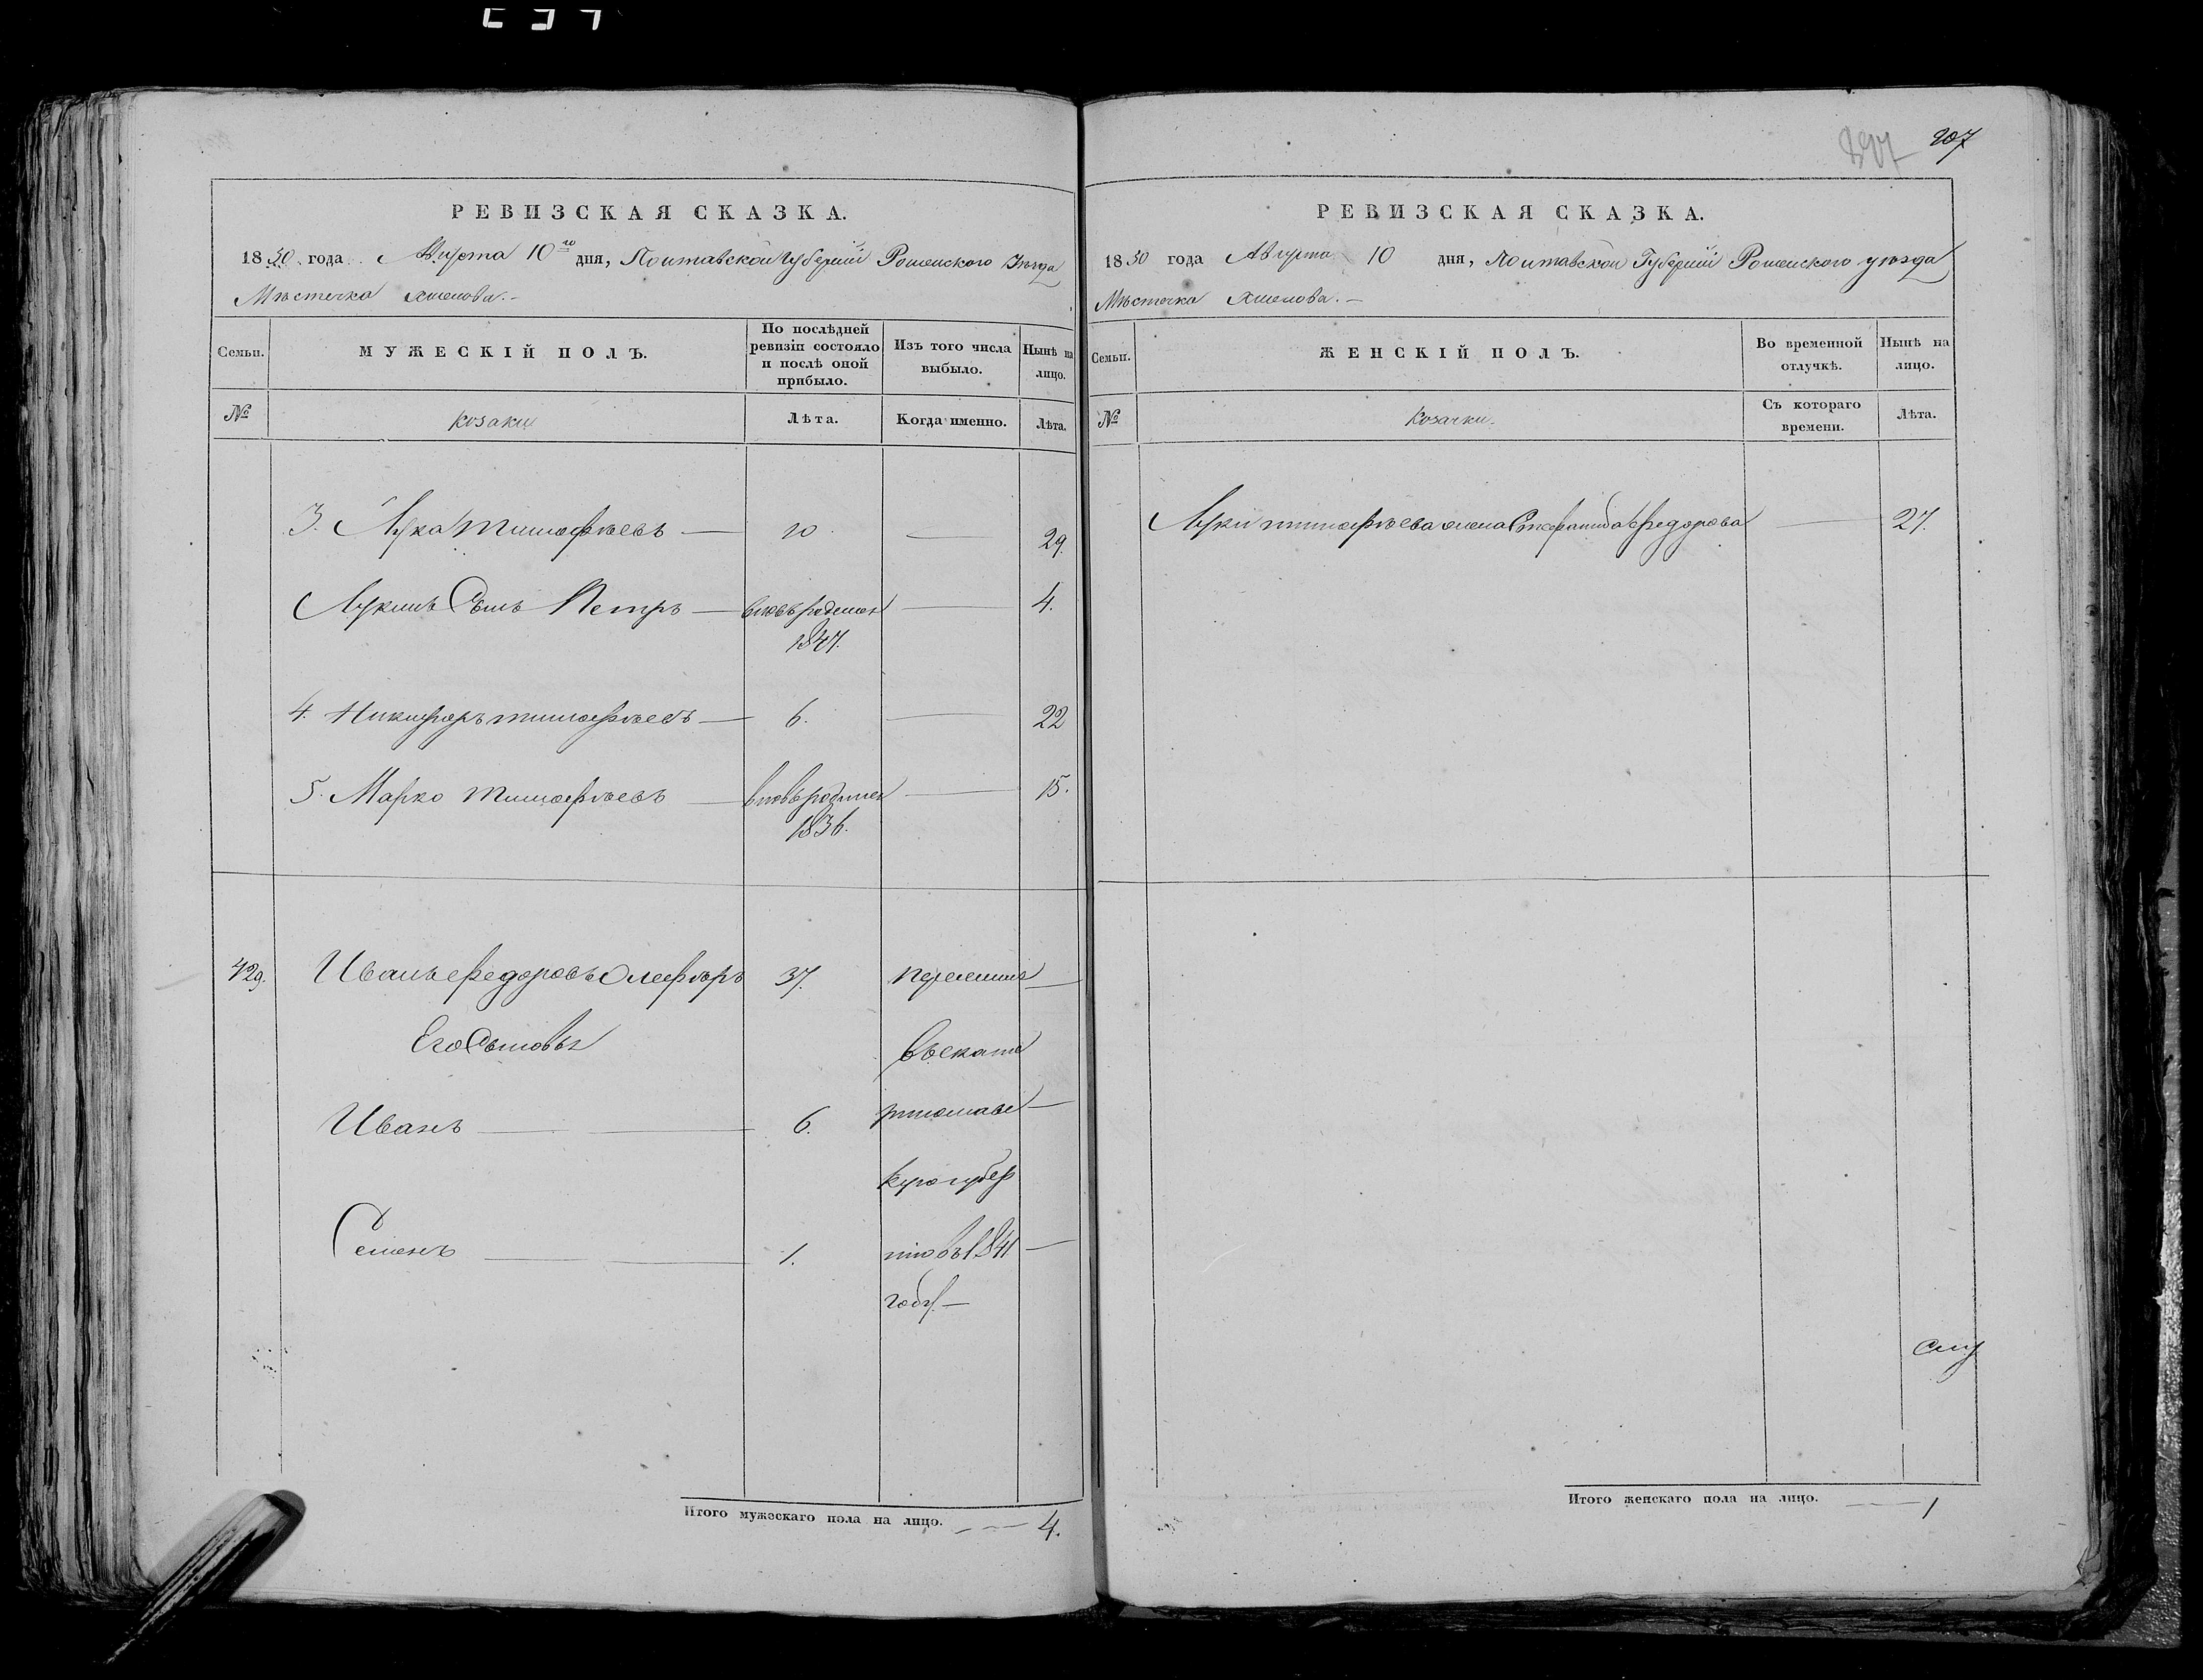 РЕВИЗСКАЯ СКАЗКА.
1850 года Августа 10го дня, Полтавской Губернии Роменского Уезда
Местечка Хмелова.-
Семьи. МУЖЕСКІЙ ПОЛЪ. По послѣдней ревизіи состояло и послѣ оной прибыло. Изъ того числа выбыло. Нынѣ на лицо.
№ Козаки Лѣта. Когда именно. Лѣта.
3. Лука Тимофѣевъ — 10 — 29.
Лукинъ Сынъ Петръ — вновьрожден — 4.
1847.
4. Никифоръ Тимофѣевъ — 6. — 22
5. Марко Тимофѣевъ — вновьрожден — 15.
1836.
429. Иванъ Федоровъ Олефиръ 37. Переселил —
Его Сыновья в Екате
Иванъ — 6. ринославс —
кую губер
Семенъ — 1. нію въ 1841 —
году. —
Итого мужескаго пола на лицо. — 4.
207
207
РЕВИЗСКАЯ СКАЗКА.
1850 года Августа 10 дня, Полтавской Губернии Роменского уезда
Местечка Хмелова. —
Семьи. ЖЕНСКІЙ ПОЛЪ. Во временной отлучкѣ. Нынѣ на лицо.
№ Козачки. Съ котораго времени. Лѣта.
Луки Тимофѣева жена Стефанида Федорова — 27.
Итого женскаго пола на лицо. — 1